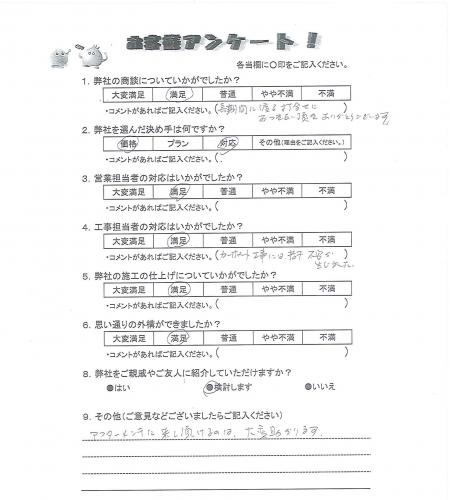 お客様アンケート！
各当欄に○印をご記入ください。
1. 弊社の商談についていかがでしたか？
大変満足 満足 普通 やや不満 不満
・コメントがあればご記入ください。(長期間に渡る打合せに
おつきあい頂きありがとうございます。)
2. 弊社を選んだ決め手は何ですか？
価格 プラン 対応 その他(理由をご記入ください。)
・コメントがあればご記入ください。( )
3. 営業担当者の対応はいかがでしたか？
大変満足 満足 普通 やや不満 不満
・コメントがあればご記入ください。( )
4. 工事担当者の対応はいかがでしたか？
大変満足 満足 普通 やや不満 不満
・コメントがあればご記入ください。(カーポート工事には若干不安が
生じました。)
5. 弊社の施工の仕上げについていかがでしたか？
大変満足 満足 普通 やや不満 不満
・コメントがあればご記入ください。( )
6. 思い通りの外構ができましたか？
大変満足 満足 普通 やや不満 不満
・コメントがあればご記入ください。( )
8. 弊社をご親戚やご友人に紹介していただけますか？
●はい ●検討します ●いいえ
9. その他(ご意見などございましたらご記入ください)
アフターメンテに来て頂けるのは、大変助かります。